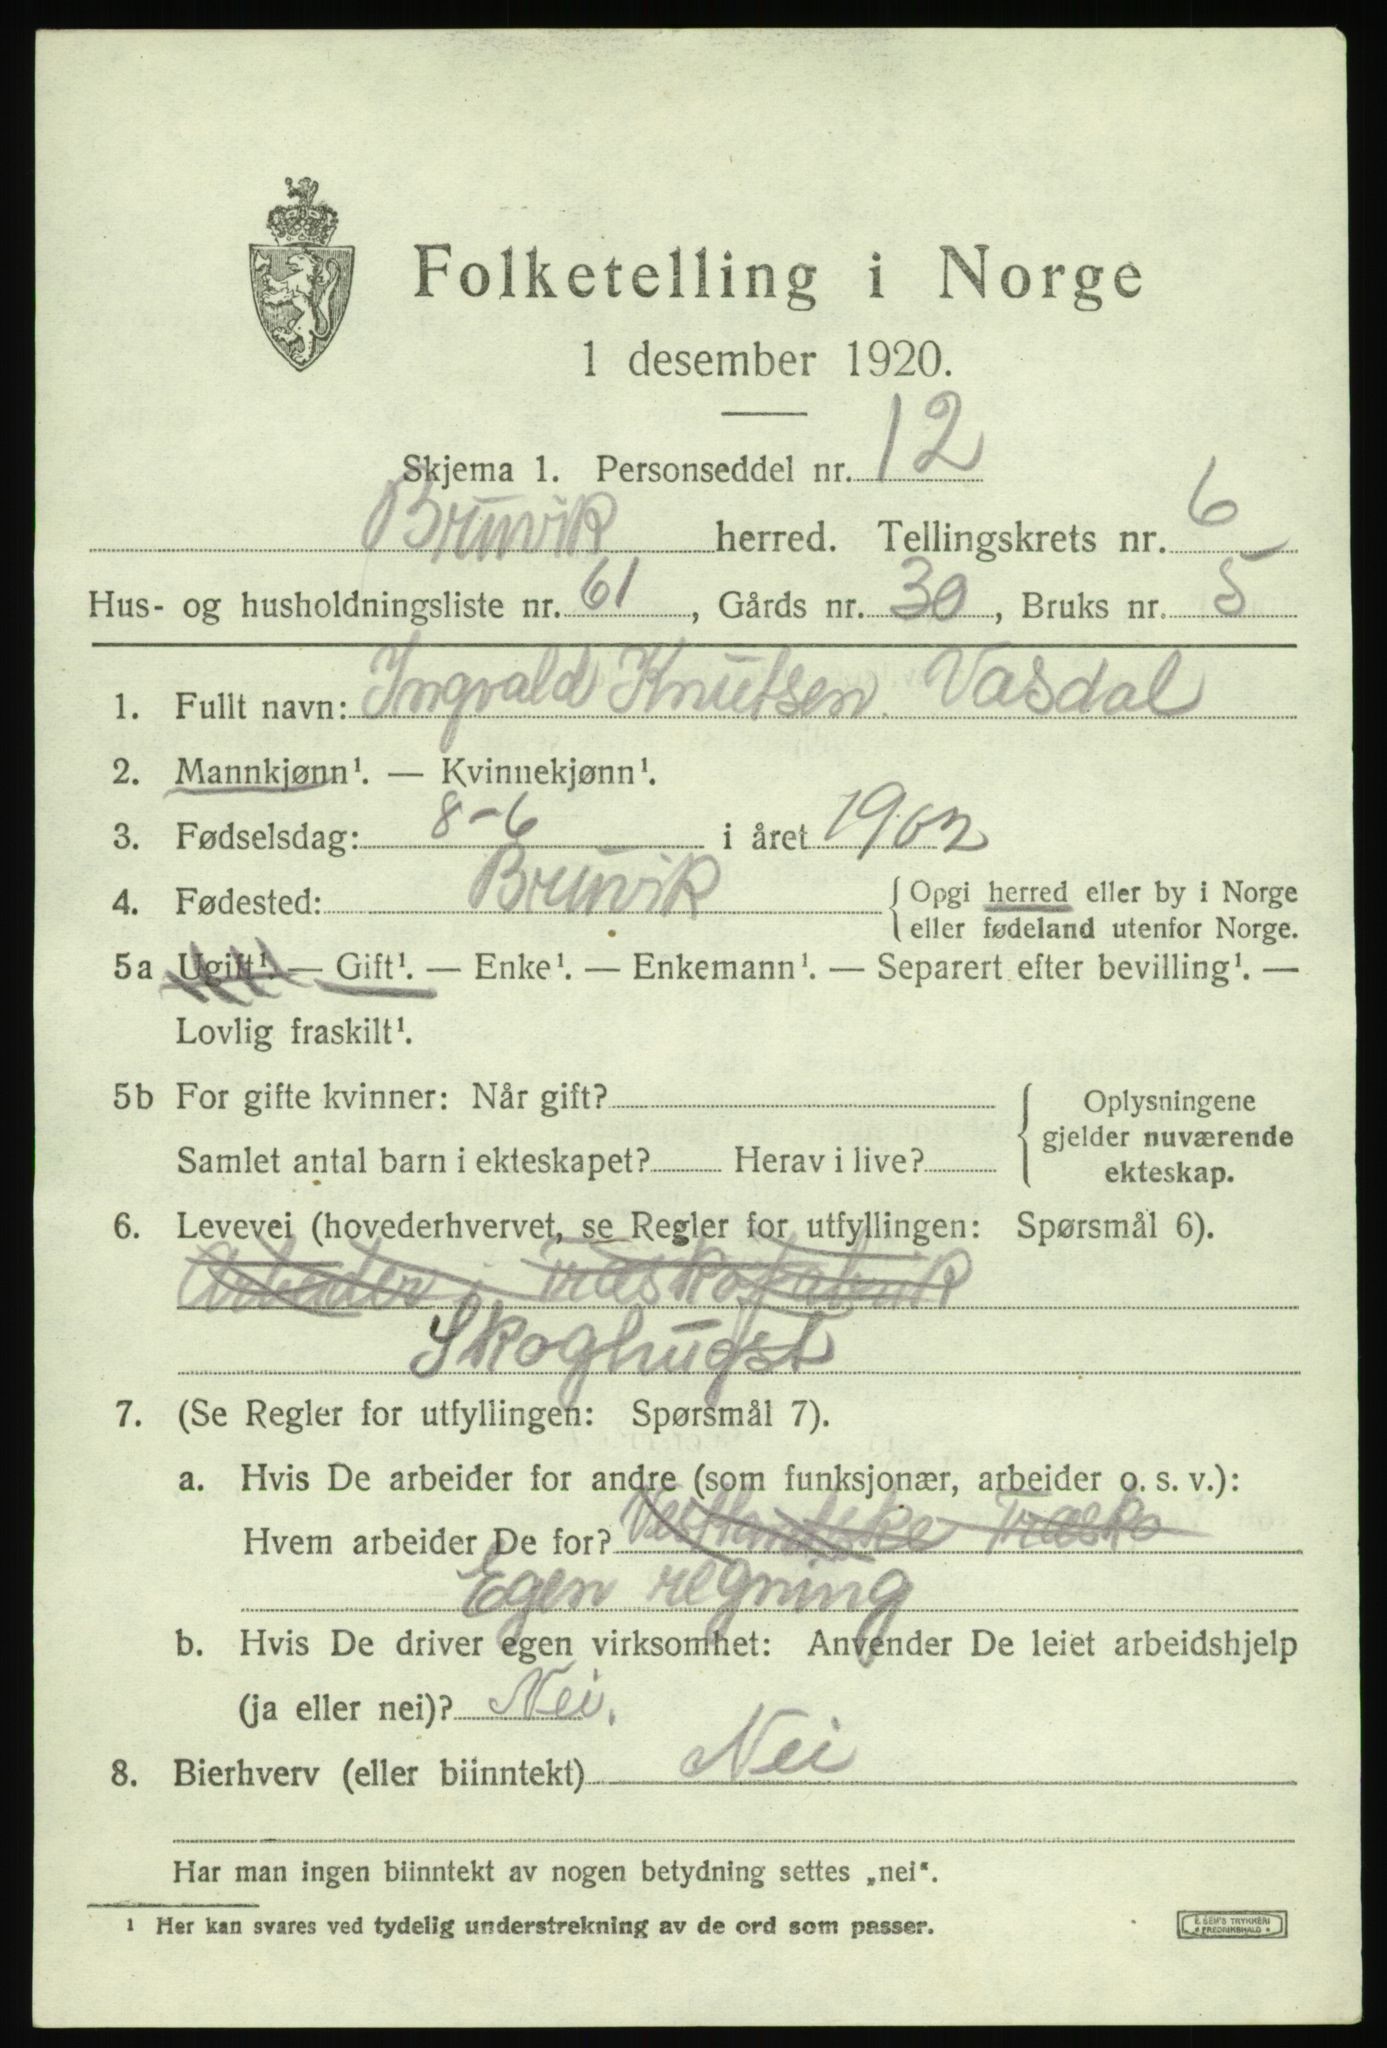 Folketelling i Norge
1 desember 1920.
Skjema 1. Personseddel nr. 12
Bruvik herred. Tellingskrets nr. 6
Hus- og husholdningsliste nr. 61, Gårds nr. 30, Bruks nr. 5
1. Fullt navn: Ingvald Knutsen Vasdal
2. Mannkjønn¹. — Kvinnekjønn¹.
3. Fødselsdag: 8-6 i året 1902
4. Fødested: Bruvik { Opgi herred eller by i Norge
eller fødeland utenfor Norge.
5a Ugift¹. — Gift¹. — Enke¹. — Enkemann¹. — Separert efter bevilling¹. —
Lovlig fraskilt¹.
5b For gifte kvinner: Når gift?
Samlet antal barn i ekteskapet? Herav i live?
{ Oplysningene
gjelder nuværende
ekteskap.
6. Levevei (hovederhvervet, se Regler for utfyllingen: Spørsmål 6).
Arbeider i Træskofabrik
Skoghugst
7. (Se Regler for utfyllingen: Spørsmål 7).
a. Hvis De arbeider for andre (som funksjonær, arbeider o. s. v.):
Hvem arbeider De for? Vestlandske Træsko
Egen regning
b. Hvis De driver egen virksomhet: Anvender De leiet arbeidshjelp
(ja eller nei)? Nei.
8. Bierhverv (eller biinntekt) Nei
Har man ingen biinntekt av nogen betydning settes „nei“.
¹ Her kan svares ved tydelig understrekning av de ord som passer.
E. SEM'S TRYKKERI
FREDRIKSHALD